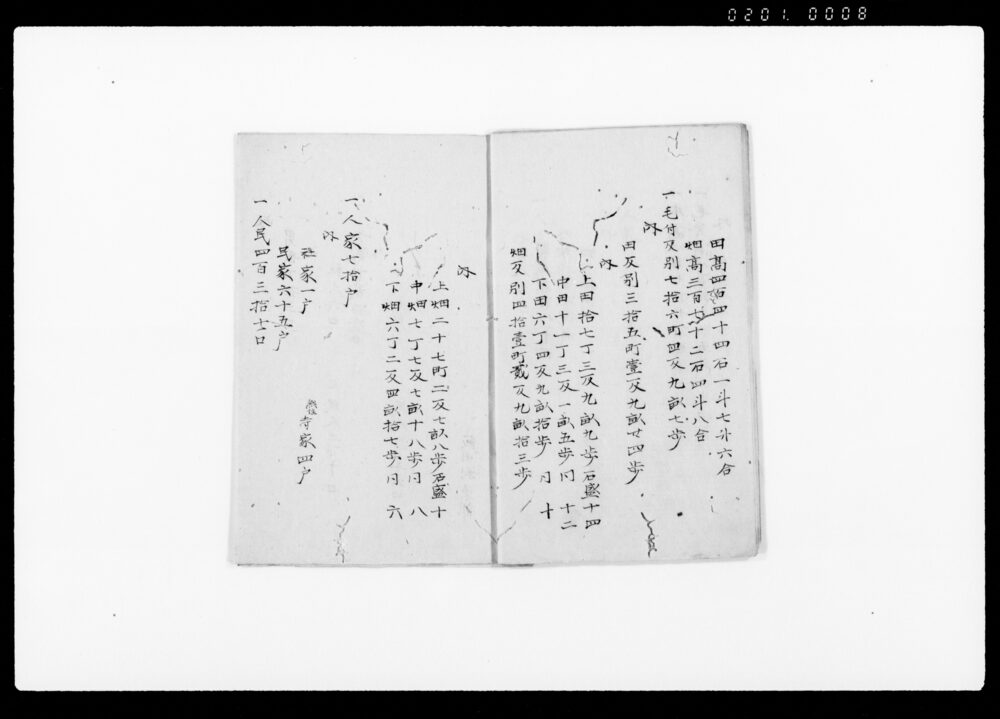 0201. 0008
田髙四百四十四石一斗七升六合
畑髙三百七十二石四斗八合
一毛付反別七拾六町四反九畝七歩
内
田反別三拾五町壹反九畝廿四歩
内
上田拾七丁三反九畝九歩石盛十四
中田十一丁三反一畝五歩同十二
下田六丁四反九畝拾歩同十
畑反別四拾壹町貳反九畝拾三歩
内
上畑二十七町二反七畝八歩石盛十
中畑七丁七反七畝十八歩同八
下畑六丁二反四畝拾七歩同六
一人家七拾戸
内
社家一戸 寺家四戸
民家六十五戸
一人民四百三拾七口